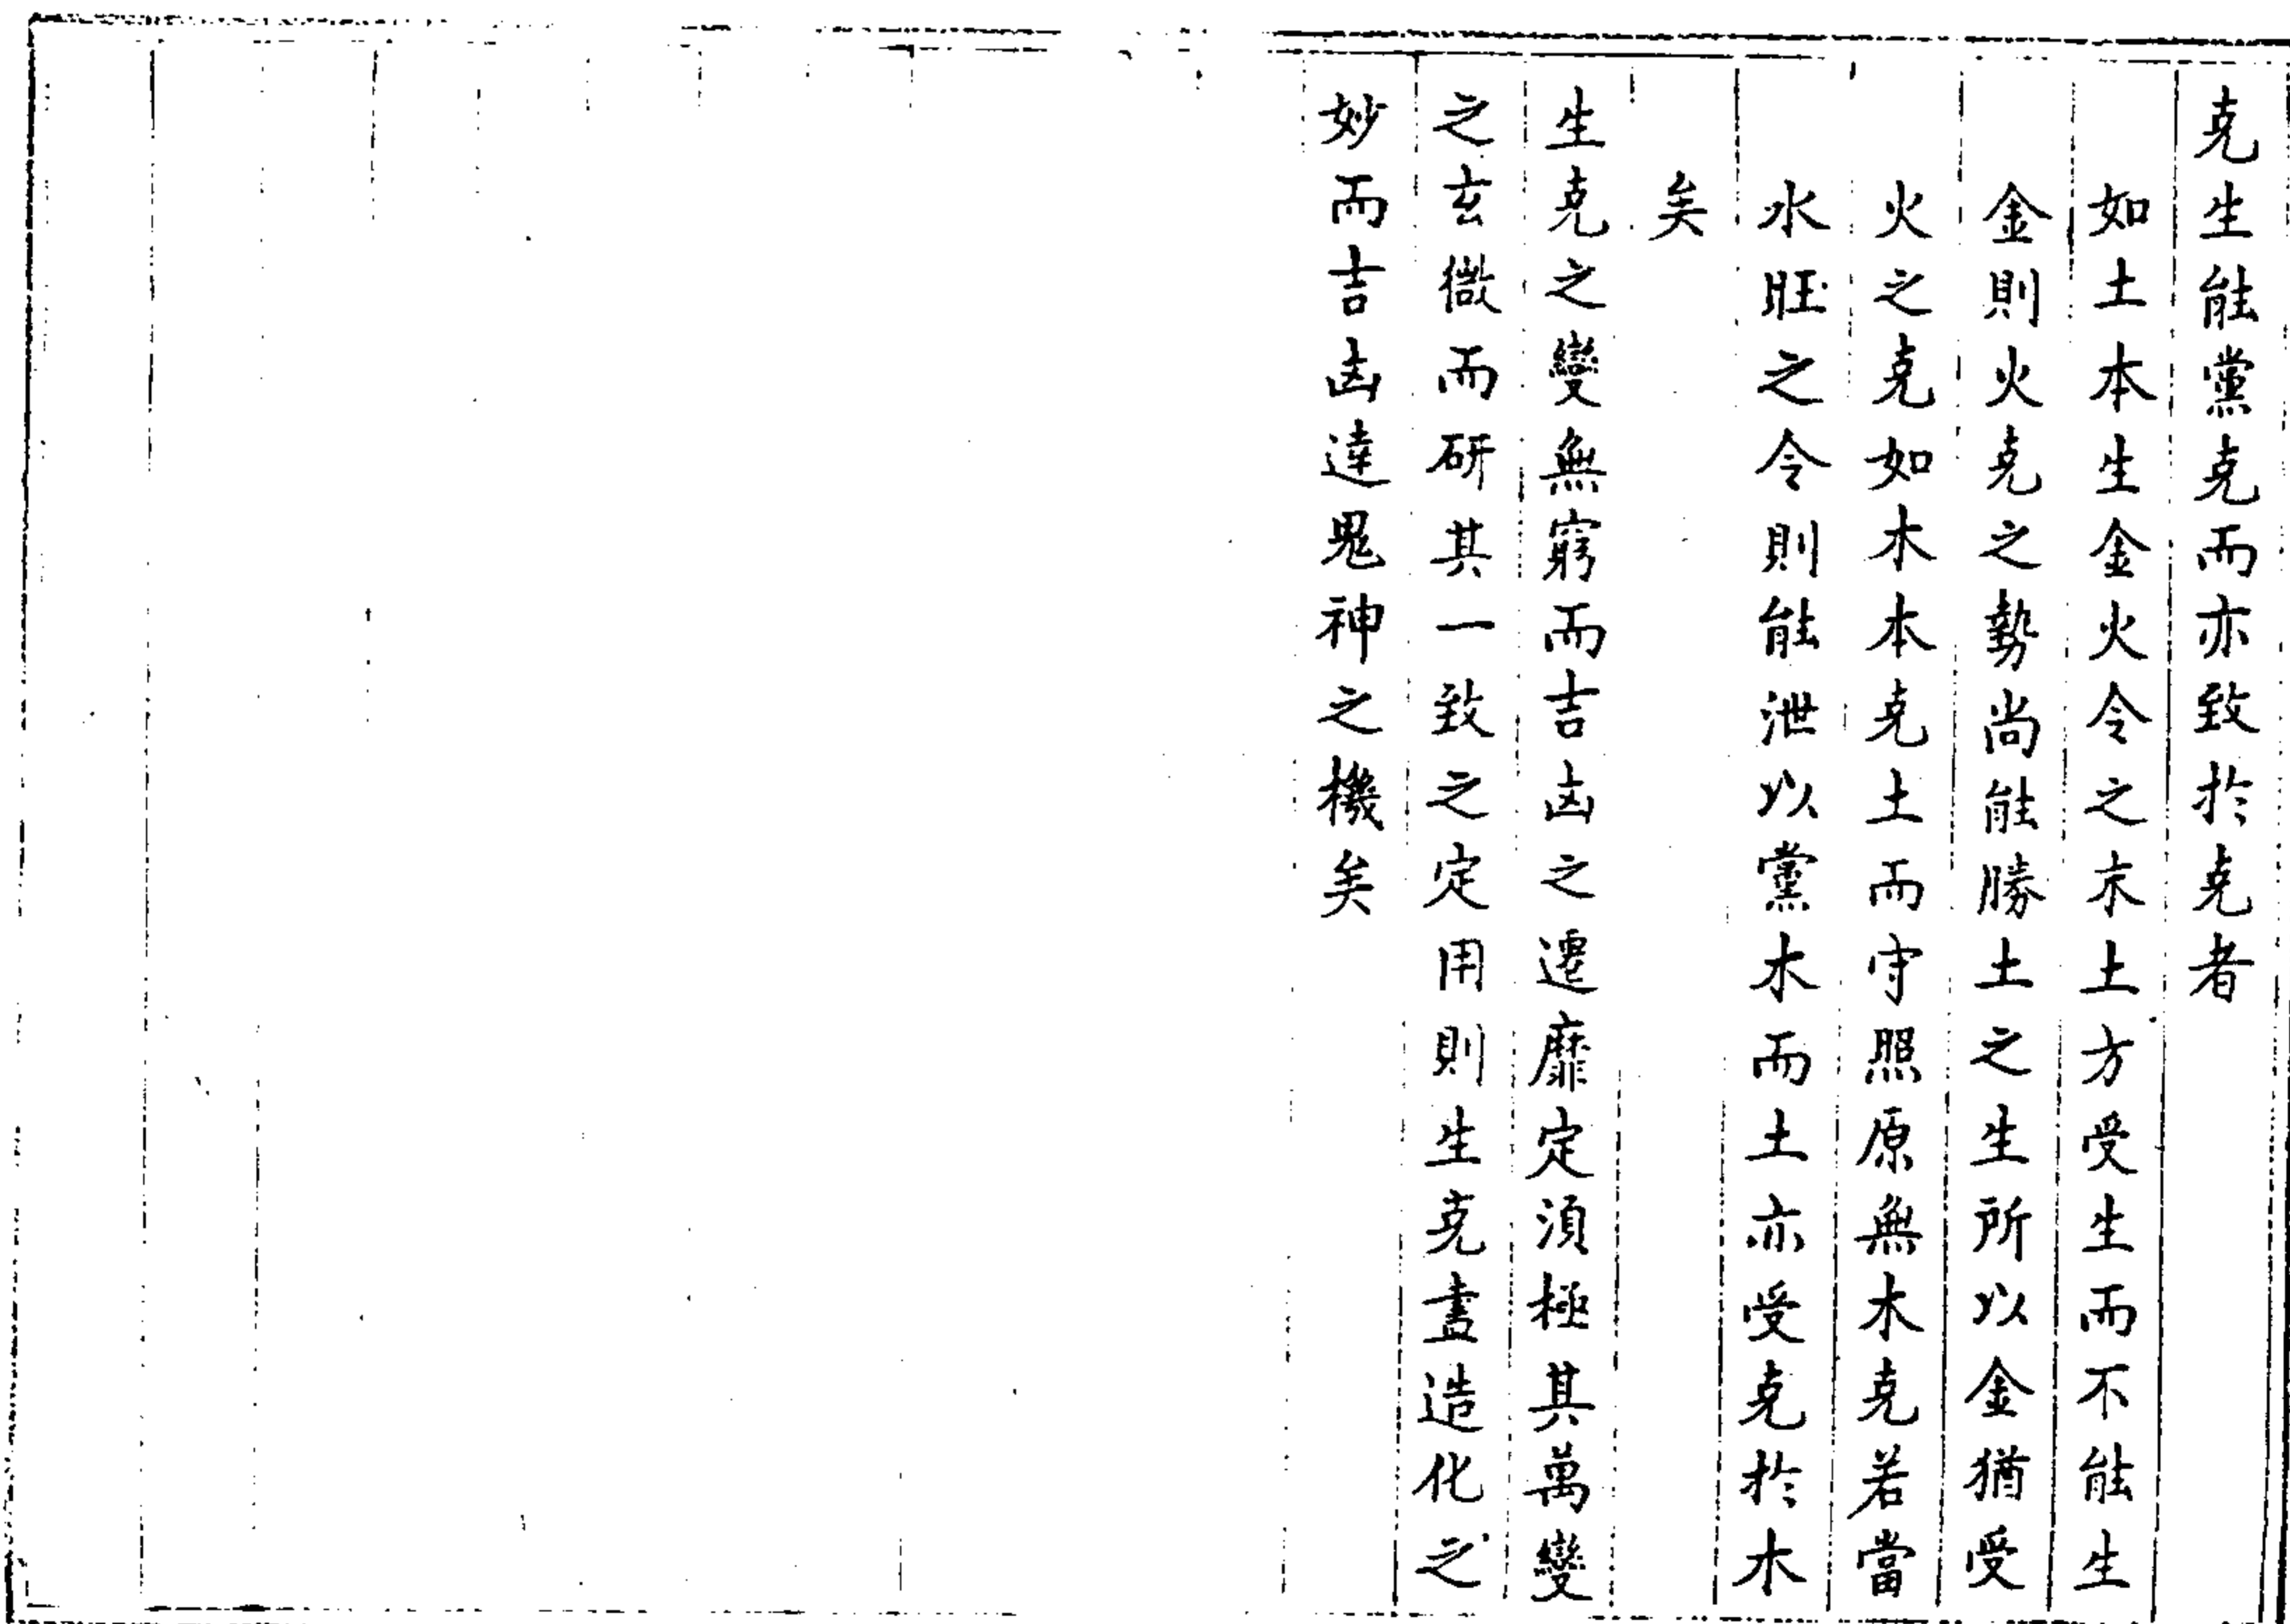 克生能黨克而亦致於克者
如土本生金火令之末土方受生而不能生
金則火克之勢尚能勝土之生所以金猶受
火之克如木本克土而守照原無木克若當
水旺之令則能泄以黨木而土亦受克於木
矣
生克之變無窮而吉凶之遷靡定須極其萬變
之玄微而研其一致之定用則生克盡造化之
妙而吉凶達鬼神之機矣